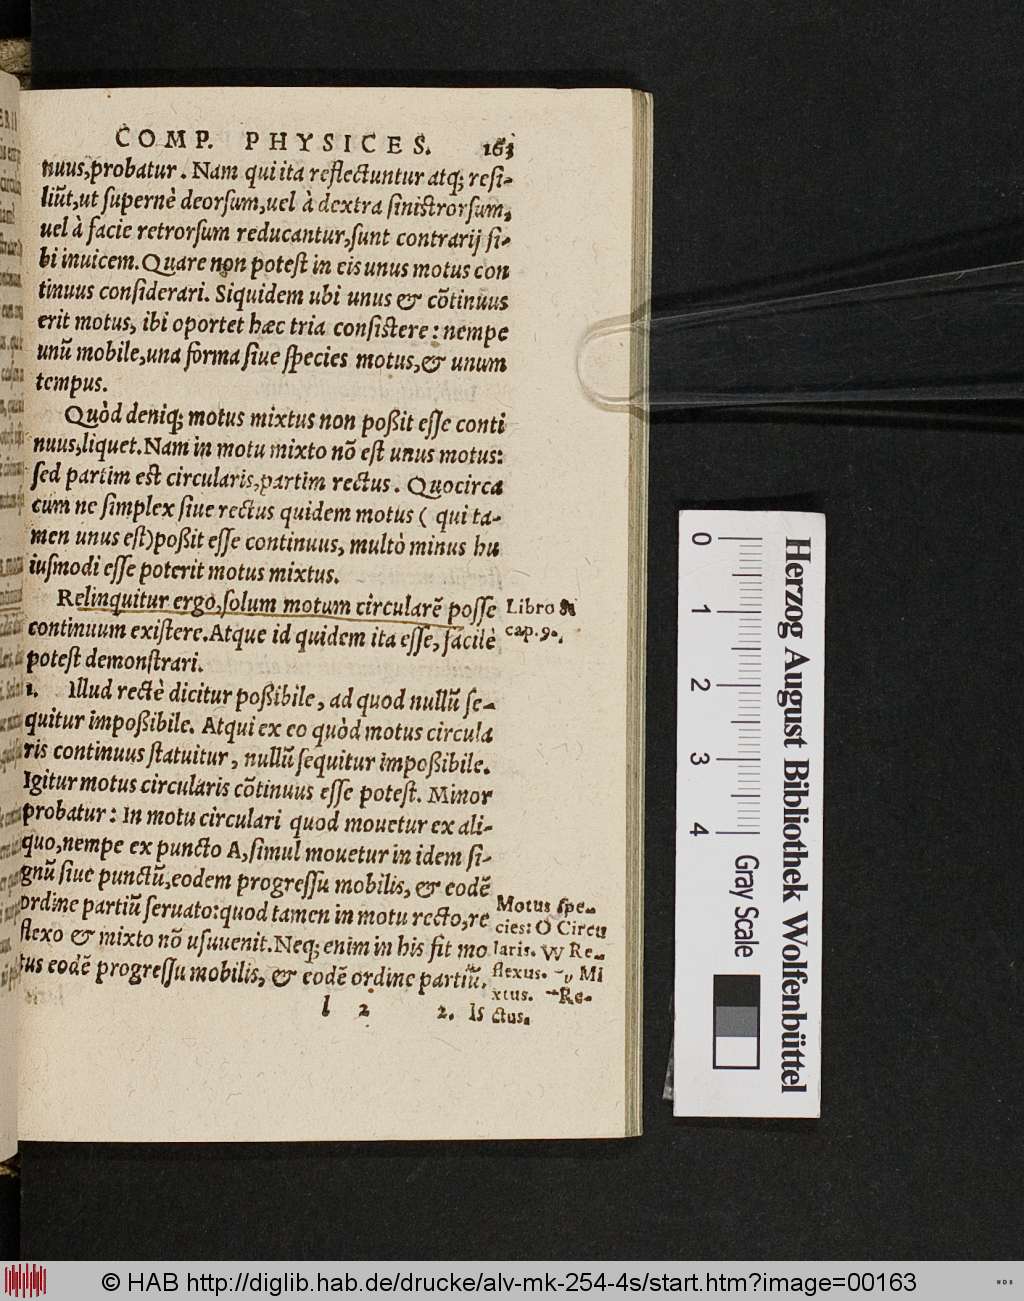 COMP. PHYSICES. 163
nuus,probatur. Nam qui ita reflectuntur atq; resi-
liũt,ut supernè deorsum,uel à dextra sinistrorsum,
uel à facie retrorsum reducantur,sunt contrarij si-
bi inuicem. Quare non potest in eis unus motus con
tinuus considerari. Siquidem ubi unus & cõtinuus
erit motus, ibi oportet hæc tria consistere: nempe
unũ mobile,una forma siue species motus,& unum
tempus.
Quòd deniq; motus mixtus non poßit esse conti
nuus,liquet. Nam in motu mixto nõ est unus motus:
sed partim est circularis,partim rectus. Quocirca
cum ne simplex siue rectus quidem motus ( qui ta-
men unus est)poßit esse continuus, multò minus hu
iusmodi esse poterit motus mixtus.
Relinquitur ergo,solum motum circularẽ posse
continuum existere. Atque id quidem ita esse, facilè
potest demonstrari.
Libro
cap. 9.
1. Illud rectè dicitur poßibile, ad quod nullũ se-
quitur impoßibile. Atqui ex eo quòd motus circula
ris continuus statuitur, nullũ sequitur impoßibile.
Igitur motus circularis cõtinuus esse potest. Minor
probatur: In motu circulari quod mouetur ex ali-
quo,nempe ex puncto A,simul mouetur in idem si-
gnũ siue punctũ,eodem progressu mobilis, & eodẽ
ordine partiũ seruato:quod tamen in motu recto,re
flexo & mixto nõ usuuenit. Neq; enim in his fit mo
tus eodẽ progressu mobilis, & eodẽ ordine partiũ.
Motus spe-
cies: O Circu
laris. W Re-
flexus. Mi
xtus. Re-
ctus.
l 2 2. Is
0 1 2 3 4
Gray Scale
Herzog August Bibliothek Wolfenbüttel
© HAB http://diglib.hab.de/drucke/alv-mk-254-4s/start.htm?image=00163